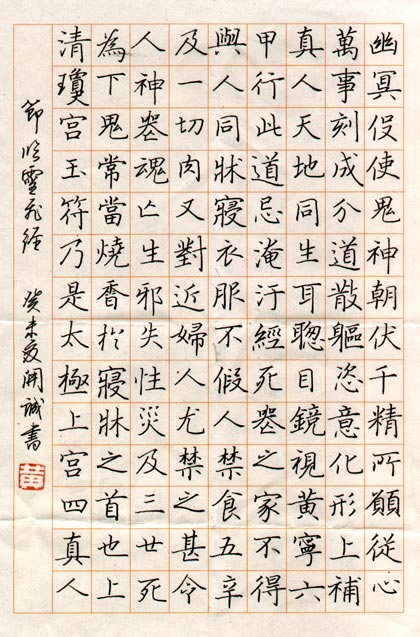 幽冥役使鬼神朝伏千精所願從心
萬事刻成分道散軀恣意化形上補
真人天地同生耳聦目鏡視黃寧六
甲行此道忌淹汙經死喪之家不得
與人同牀寢衣服不假人禁食五辛
及一切肉又對近婦人尤禁之甚令
人神喪魂亡生邪失性災及三世死
為下鬼常當燒香於寢牀之首也上
清瓊宮玉符乃是太極上宮四真人
節臨靈飛經 癸未夏開誠書
黃